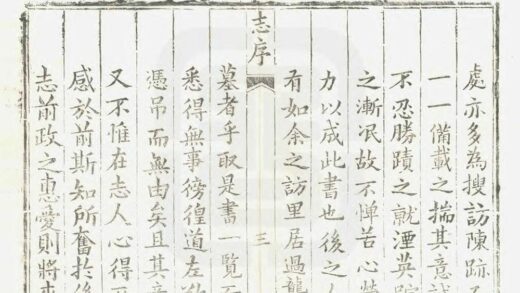 處亦多為搜訪陳跡
一一備載之揣其意
不忍勝蹟之就湮英
之漸泯故不憚苦心
力以成此書也後之
有如余之訪里居過龍
志序
三
墓者乎取是書一覽
悉得無事徬徨道左
憑弔而無由矣且其
又不惟在志人心得
感於前斯知所奮於後
志前政之惠愛則將